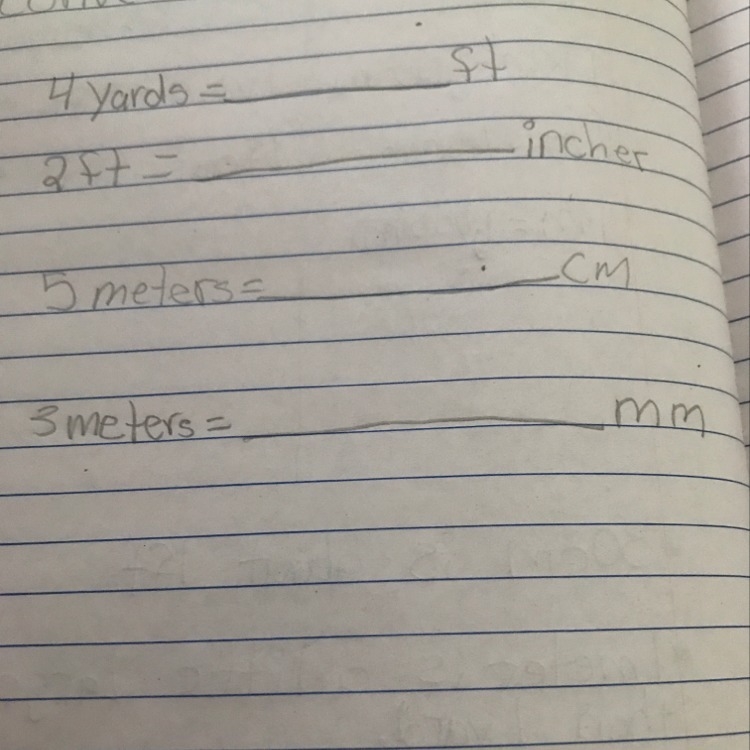 4 yards = ft
2ft = incher
5 meters = cm
3 meters = mm